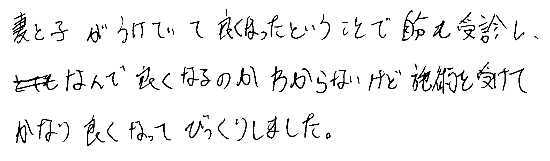 妻と子がうけていて良くなったということで自分も受診し、
なんで良くなるのかわからないけど施術を受けて
かなり良くなってびっくりしました。